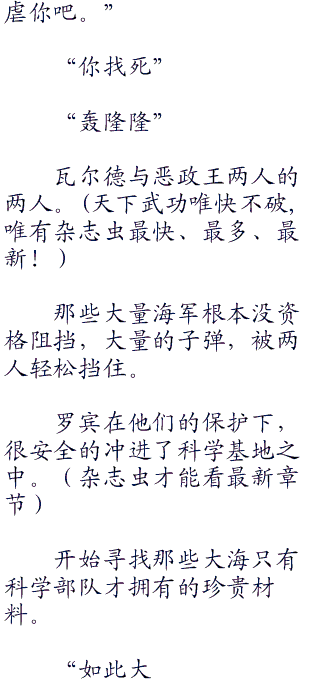 虐你吧。”
“你找死”
“轰隆隆”
瓦尔德与恶政王两人的
两人。(天下武功唯快不破,
唯有杂志虫最快、最多、最
新！)
那些大量海军根本没资
格阻挡，大量的子弹，被两
人轻松挡住。
罗宾在他们的保护下，
很安全的冲进了科学基地之
中。（杂志虫才能看最新章
节）
开始寻找那些大海只有
科学部队才拥有的珍贵材
料。
“如此大